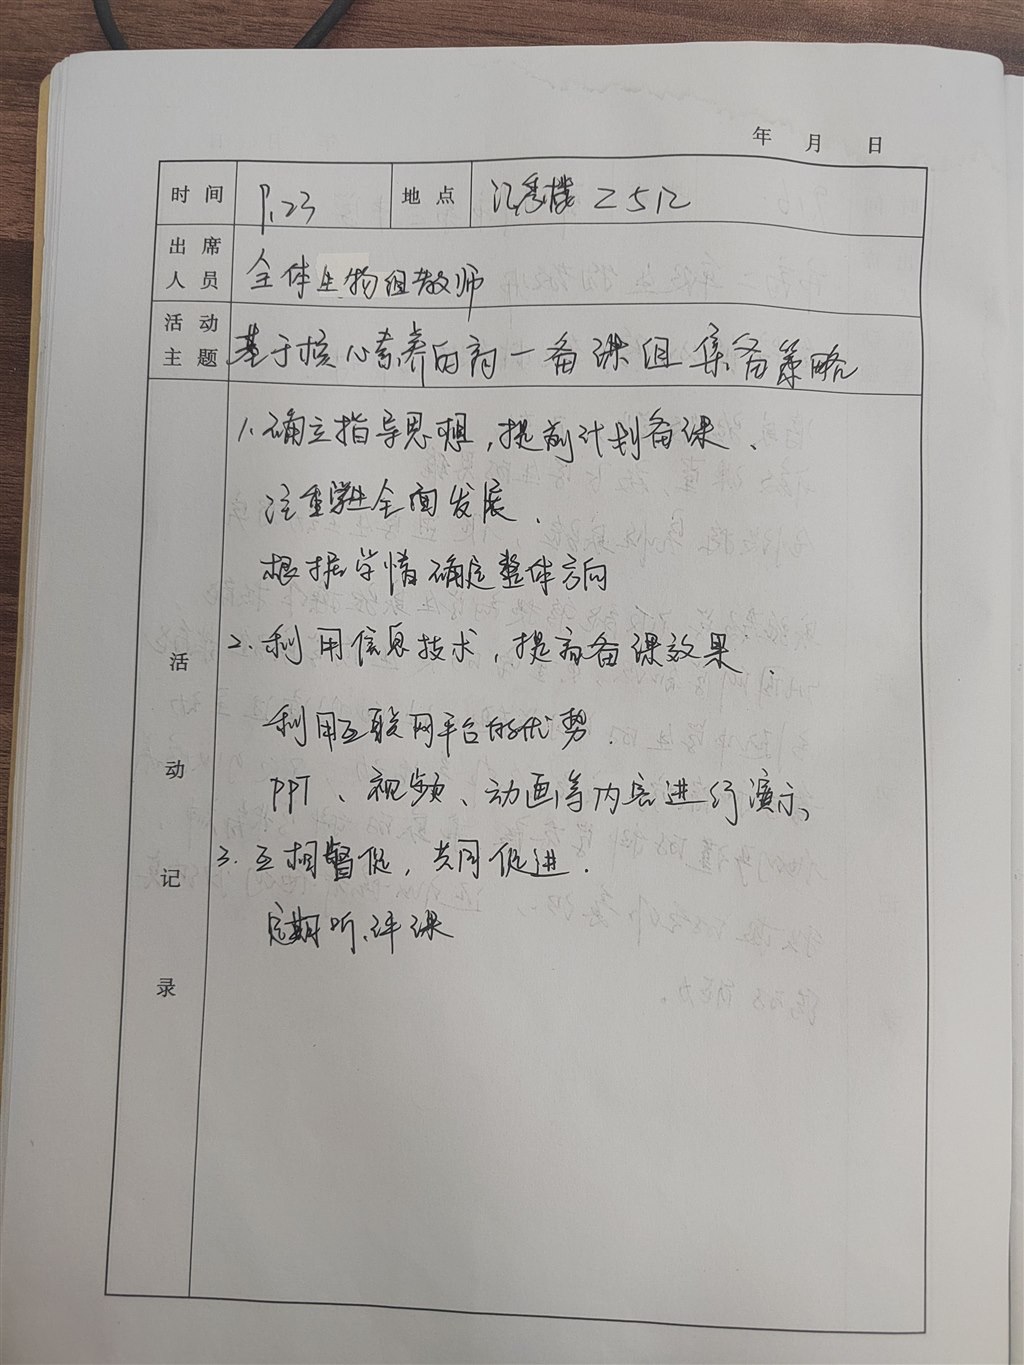 年 月 日
时间 9.23 地点 汇秀楼 Z512
出席人员 全体生物组教师
活动主题 基于核心素养的高一备课组集备策略
活动记录
1.确立指导思想,提前计划备课、
注重学生全面发展、
根据学情确定整体方向
2.利用信息技术,提高备课效果、
利用互联网平台的优势.
PPT、视频、动画等内容进行演示、
3.互相督促,共同促进.
定期听、评课